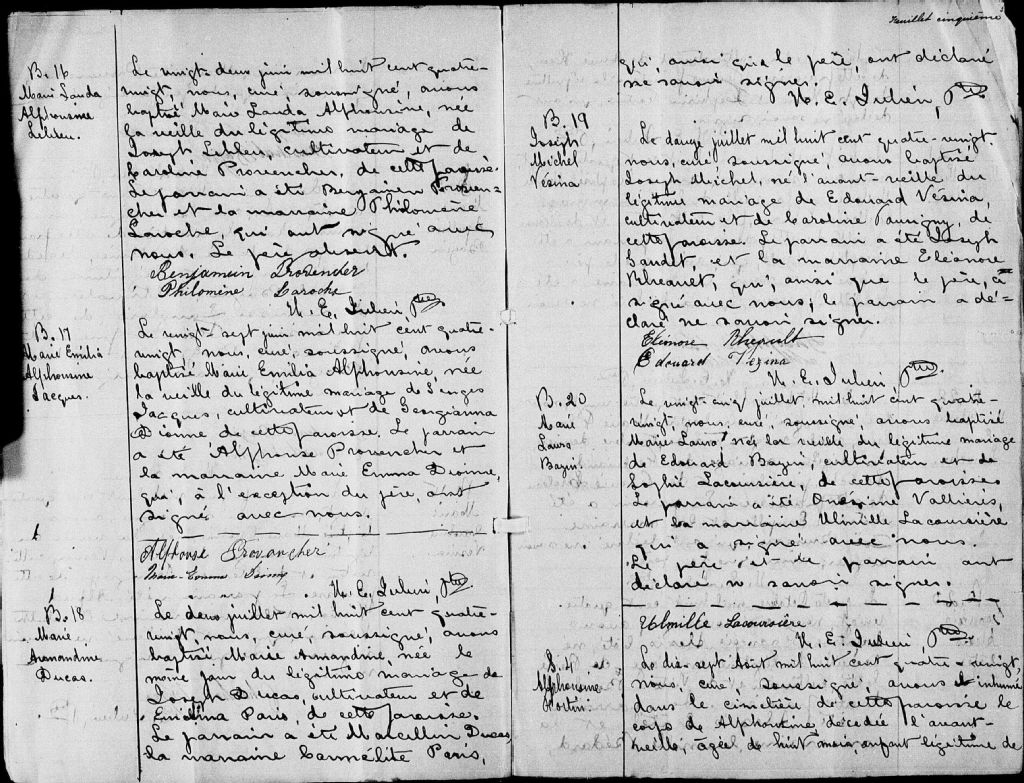 B. 16
Marie Lauda
Alphonsine
Lebleu.
Le vingt-deux juin mil huit cent quatre-
vingt, nous, curé soussigné, avons
baptisé Marie Lauda Alphonsine, née
la veille du légitime mariage de
Joseph Lebleu, cultivateur et de
Caroline Provencher, de cette paroisse.
Le parrain a été Benjamin Proven-
cher et la marraine Philomène
Laroche, qui ont signé avec
nous. Le père absent.
Benjamin Provencher
Philomène Laroche
N. E. Julien, Ptre
B. 17
Marie Emilia
Alphonsine
Jacques.
Le vingt-sept juin mil huit cent quatre-
vingt, nous, curé, soussigné, avons
baptisé Marie Emilia Alphonsine, née
la veille du légitime mariage de
Jacques, cultivateur et de Georgianna
Dionne de cette paroisse. Le parrain
a été Alphonse Provencher et
la marraine Marie Emma Dionne,
qui, à l'exception du père, ont
signé avec nous.
Alphonse Provancher
Marie-
N. E. Julien, Ptre
B. 18
Marie
Armandine
Ducas.
Le deux juillet mil huit cent quatre-
vingt, nous, curé, soussigné, avons
baptisé, Marie Armandine, née le
même jour du légitime mariage de
Joseph Ducas, cultivateur et de
Paris, de cette paroisse.
Le parrain a été Marcellin Ducas,
la marraine Carmélite Paris,
Feuillet cinquième
qui ainsi que le père, ont déclaré
ne savoir signer.
N. E. Julien, Ptre
B. 19
Joseph
Michel
Vézina
Le douze juillet mil huit cent quatre-vingt,
nous, curé, soussigné, avons baptisé
Joseph Michel, né l'avant-veille du
légitime mariage de Edouard Vézina,
cultivateur et de Caroline de
cette paroisse. Le parrain a été Joseph
Gaudet, et la marraine Eléonore
Rheault, qui, ainsi que le père, a
signé avec nous; le parrain a dé-
claré ne savoir signer.
Rheault
Edouard Vezina
N. E. Julien, Ptre.
B. 20
Marie
Laura
Bazin.
Le vingt-cinq juillet mil huit cent quatre-
vingt, nous, curé, soussigné, avons baptisé
Marie Laura née la veille du légitime mariage
de Edouard Bazin, cultivateur et de
Sophie Lacoursière, de cette paroisse
Le parrain a été Onésime Vallières,
et la marraine Ulmille Lacoursière
qui a signé avec nous.
Le père et le parrain ont
déclaré ne savoir signer.
Ulmille Lacoursière
N. E. Julien, Ptre.
Alphonsine
Fortin.
Le dix-sept Août mil huit cent quatre-vingt,
nous, curé, soussigné, avons inhumé
dans le cimetière de cette paroisse le
corps de Alphonsine décédée l'avant-
veille, âgée de huit mois, enfant légitime de